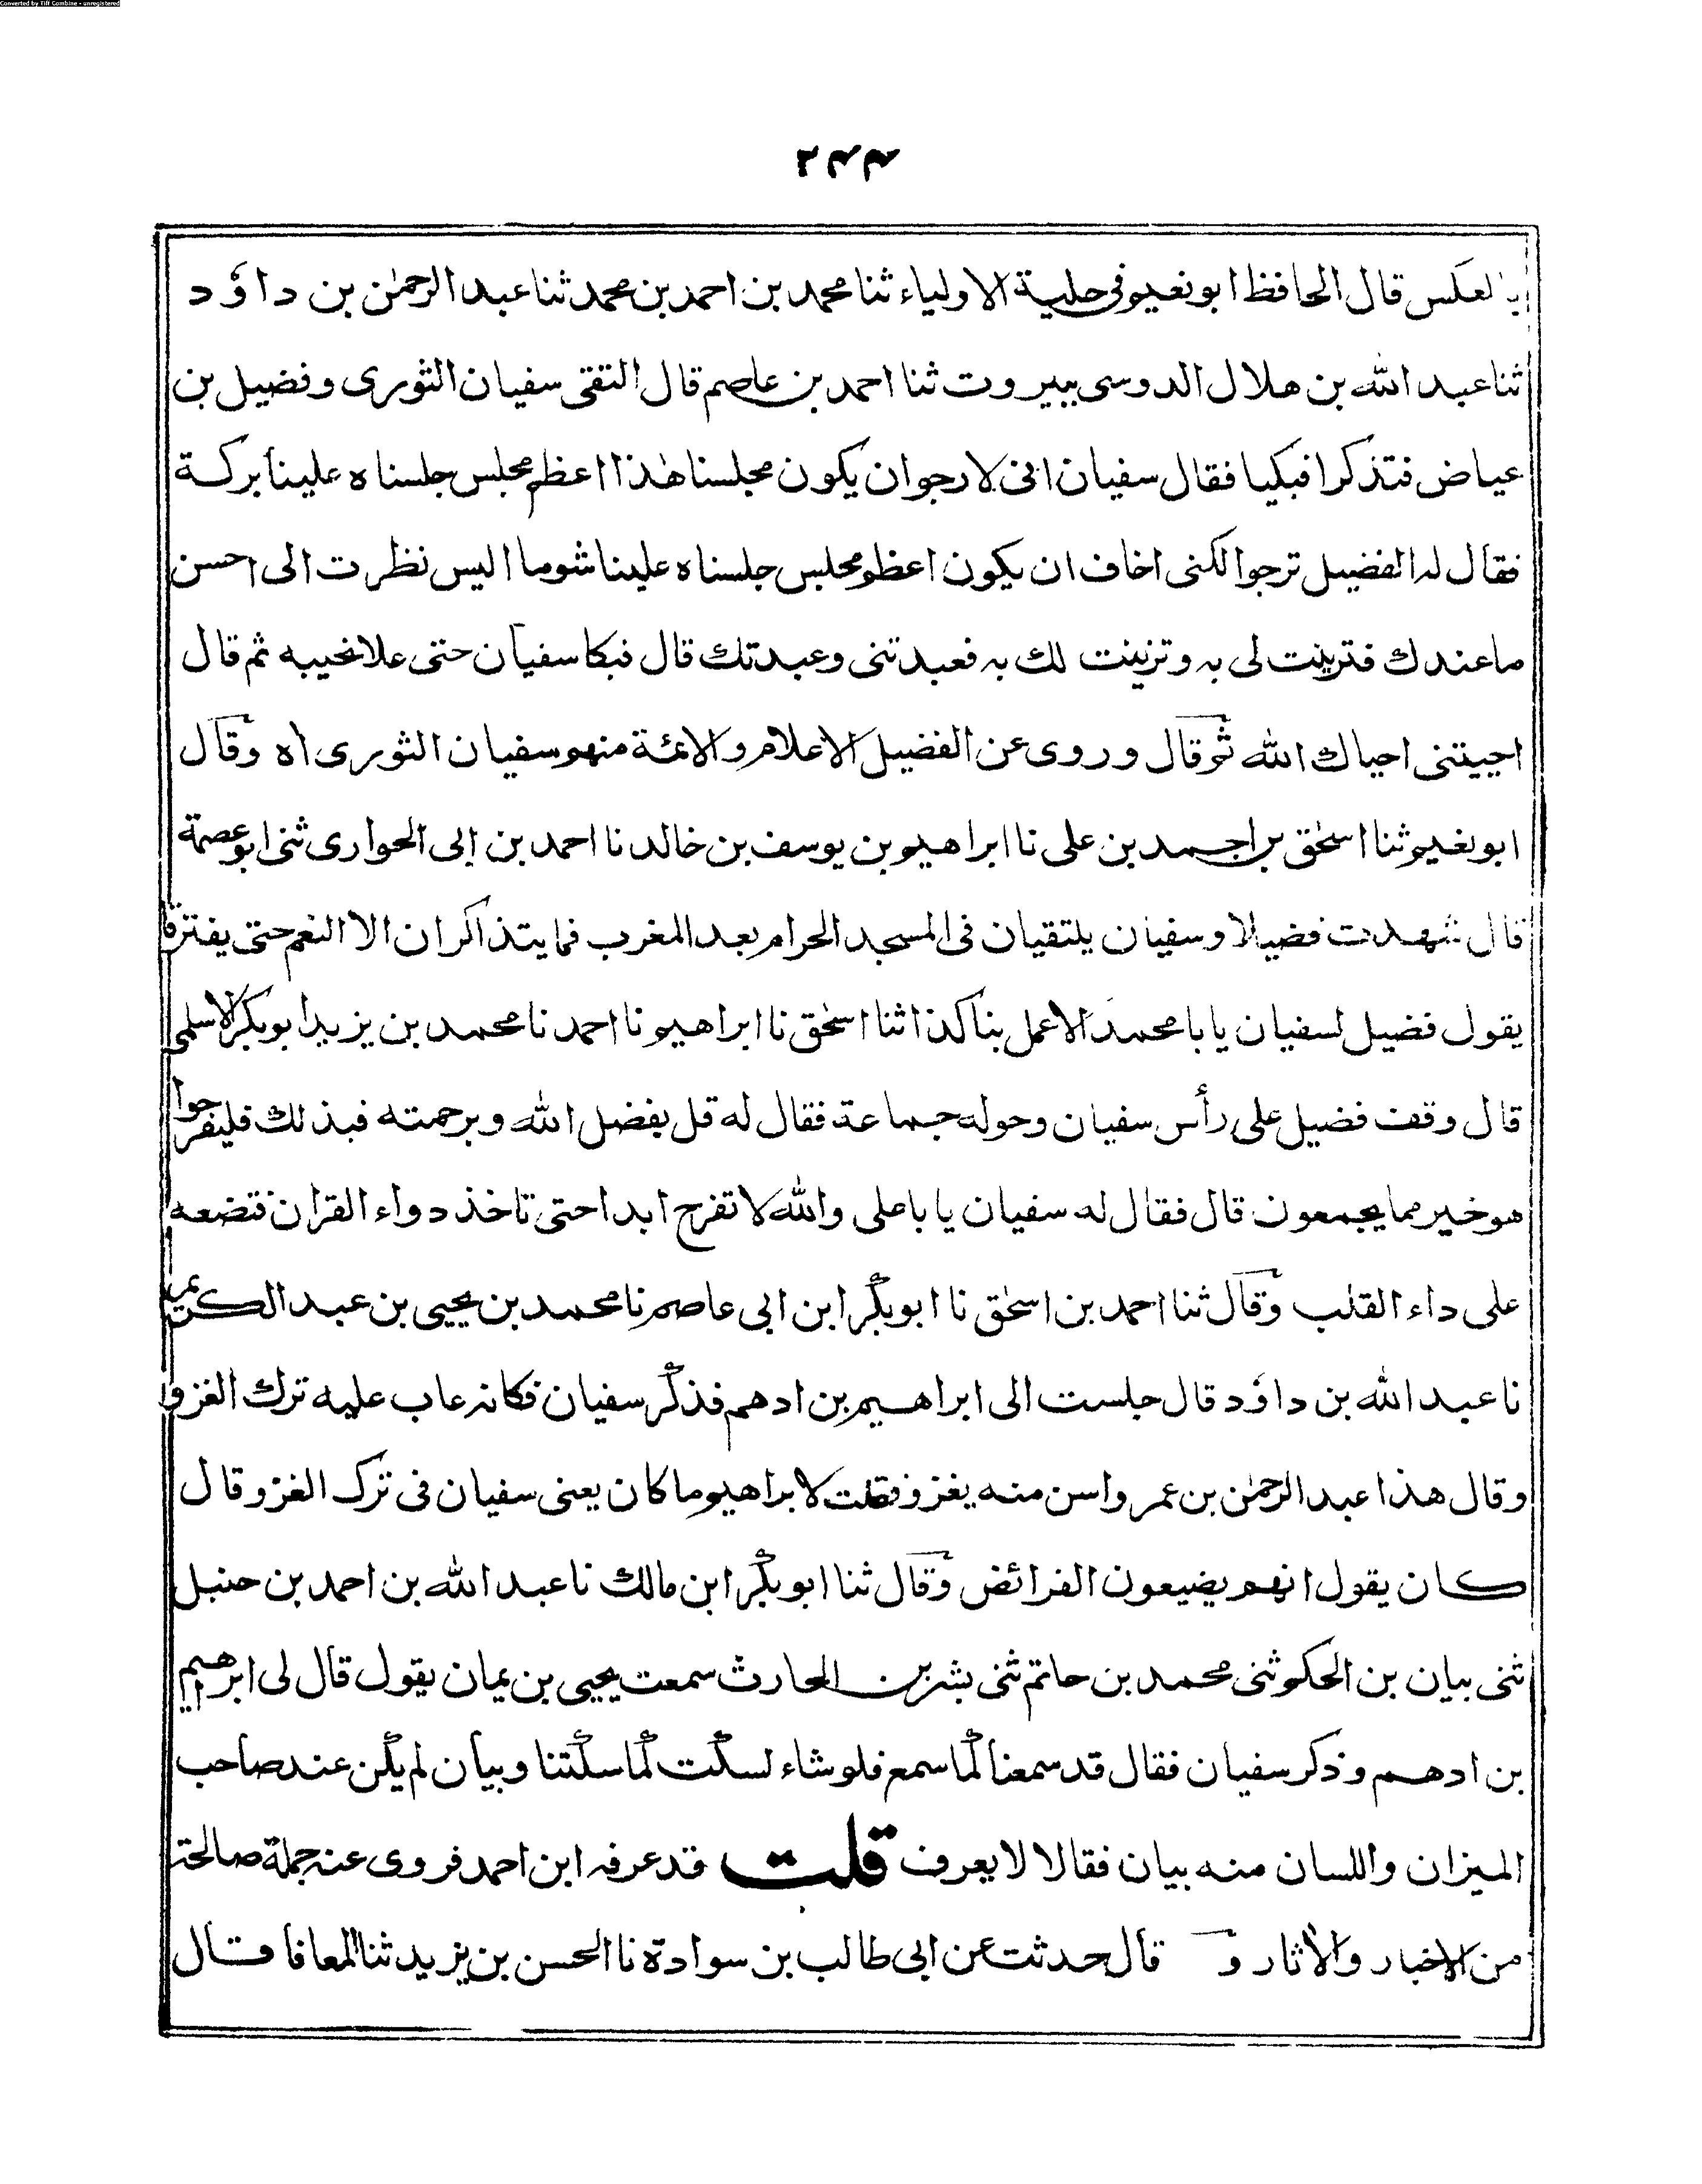 Converted by Tiff Combine - unregistered
بالعكس قال الحافظ ابو نعيم فى حلية الاولياء ثنا محمد بن احمد بن محمد ثنا عبد الرحمٰن بن داؤد
ثنا عبد الله بن هلال الدوسى ببيروت ثنا احمد بن عاصم قال التقى سفيان الثورى وفضيل بن
عياض فتذكرا فبكيا فقال سفيان انى لارجو ان يكون مجلسنا هٰذا اعظم مجلس جلسناه علينا بركة
فقال له الفضيل ترجوا لكنى اخاف ان يكون اعظم مجلس جلسناه علينا شوما اليس نظرت الى احسن
ما عندك فتزينت لى به وتزينت لك به فعبدتنى وعبدتك قال فبكا سفيان حتى علا نحيبه ثم قال
احييتنى احياك الله ثم قال وروى عن الفضيل الاعلام والائمة منهم سفيان الثورى اه وقال
ابو نعيم ثنا اسحٰق بن احمد بن على نا ابراهيم بن يوسف بن خالد نا احمد بن ابى الحوارى ثنى ابو عصمة
قال شهدت فضيلا وسفيان يلتقيان فى المسجد الحرام بعد المغرب فما يتذاكران الا النعم حتى يفترقا
يقول فضيل لسفيان يا با محمد الا عمل بنا كذا ثنا اسحٰق نا ابراهيم نا احمد نا محمد بن يزيد ابو بكر الاسلمى
قال وقف فضيل على رأس سفيان وحوله جماعة فقال له قل بفضل الله وبرحمته فبذلك فليفرحوا
هو خير مما يجمعون قال فقال له سفيان يا با على والله لا تفرح ابدا حتى تاخذ دواء القران فتضعه
على داء القلب وقال ثنا احمد بن اسحٰق نا ابو بكر ابن ابى عاصم نا محمد بن يحيى بن عبد الكريم
نا عبد الله بن داؤد قال جلست الى ابراهيم بن ادهم فذكر سفيان فكانه عاب عليه ترك الغزو
وقال هذا عبد الرحمٰن بن عمرو اسن منه يغزو فقلت لابراهيم ما كان يعنى سفيان فى ترك الغزو قال
كان يقول انهم يضيعون الفرائض وقال ثنا ابو بكر ابن مالك نا عبد الله بن احمد بن حنبل
ثنى بيان بن الحكم ثنى محمد بن حاتم ثنى بشر بن الحارث سمعت يحيى بن يمان يقول قال لى ابرهيم
بن ادهم وذكر سفيان فقال قد سمعنا كما سمع فلو شاء لسكت كما سكتنا وبيان لم يكن عند صاحب
الميزان واللسان منه بيان فقالا لا يعرف قلت قد عرفه ابن احمد فروى عنه جملة صالحة
من الاخبار والاثار و قال حدثت عن ابى طالب بن سوادة نا الحسن بن يزيد ثنا المعافا قال